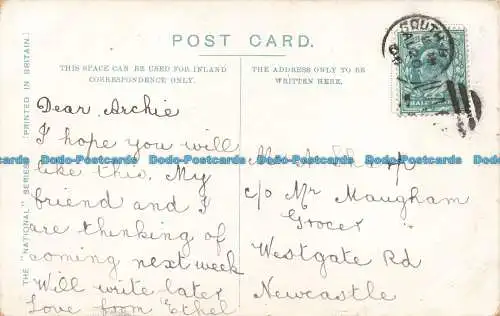 POST CARD.
THIS SPACE CAN BE USED FOR INLAND
CORRESPONDENCE ONLY.
THE ADDRESS ONLY TO BE
WRITTEN HERE.
THE "NATIONAL" SERIES
PRINTED IN BRITAIN
Dear Archie
I hope you will
like this. My
friend and I
are thinking of
coming next week
Will write later
Love from Ethel
c/o Mr Maugham
Grocer
Westgate Rd
Newcastle
Dodo-Postcards Dodo-Postcards Dodo-Postcards Dodo-Postcards Dodo-Postcards